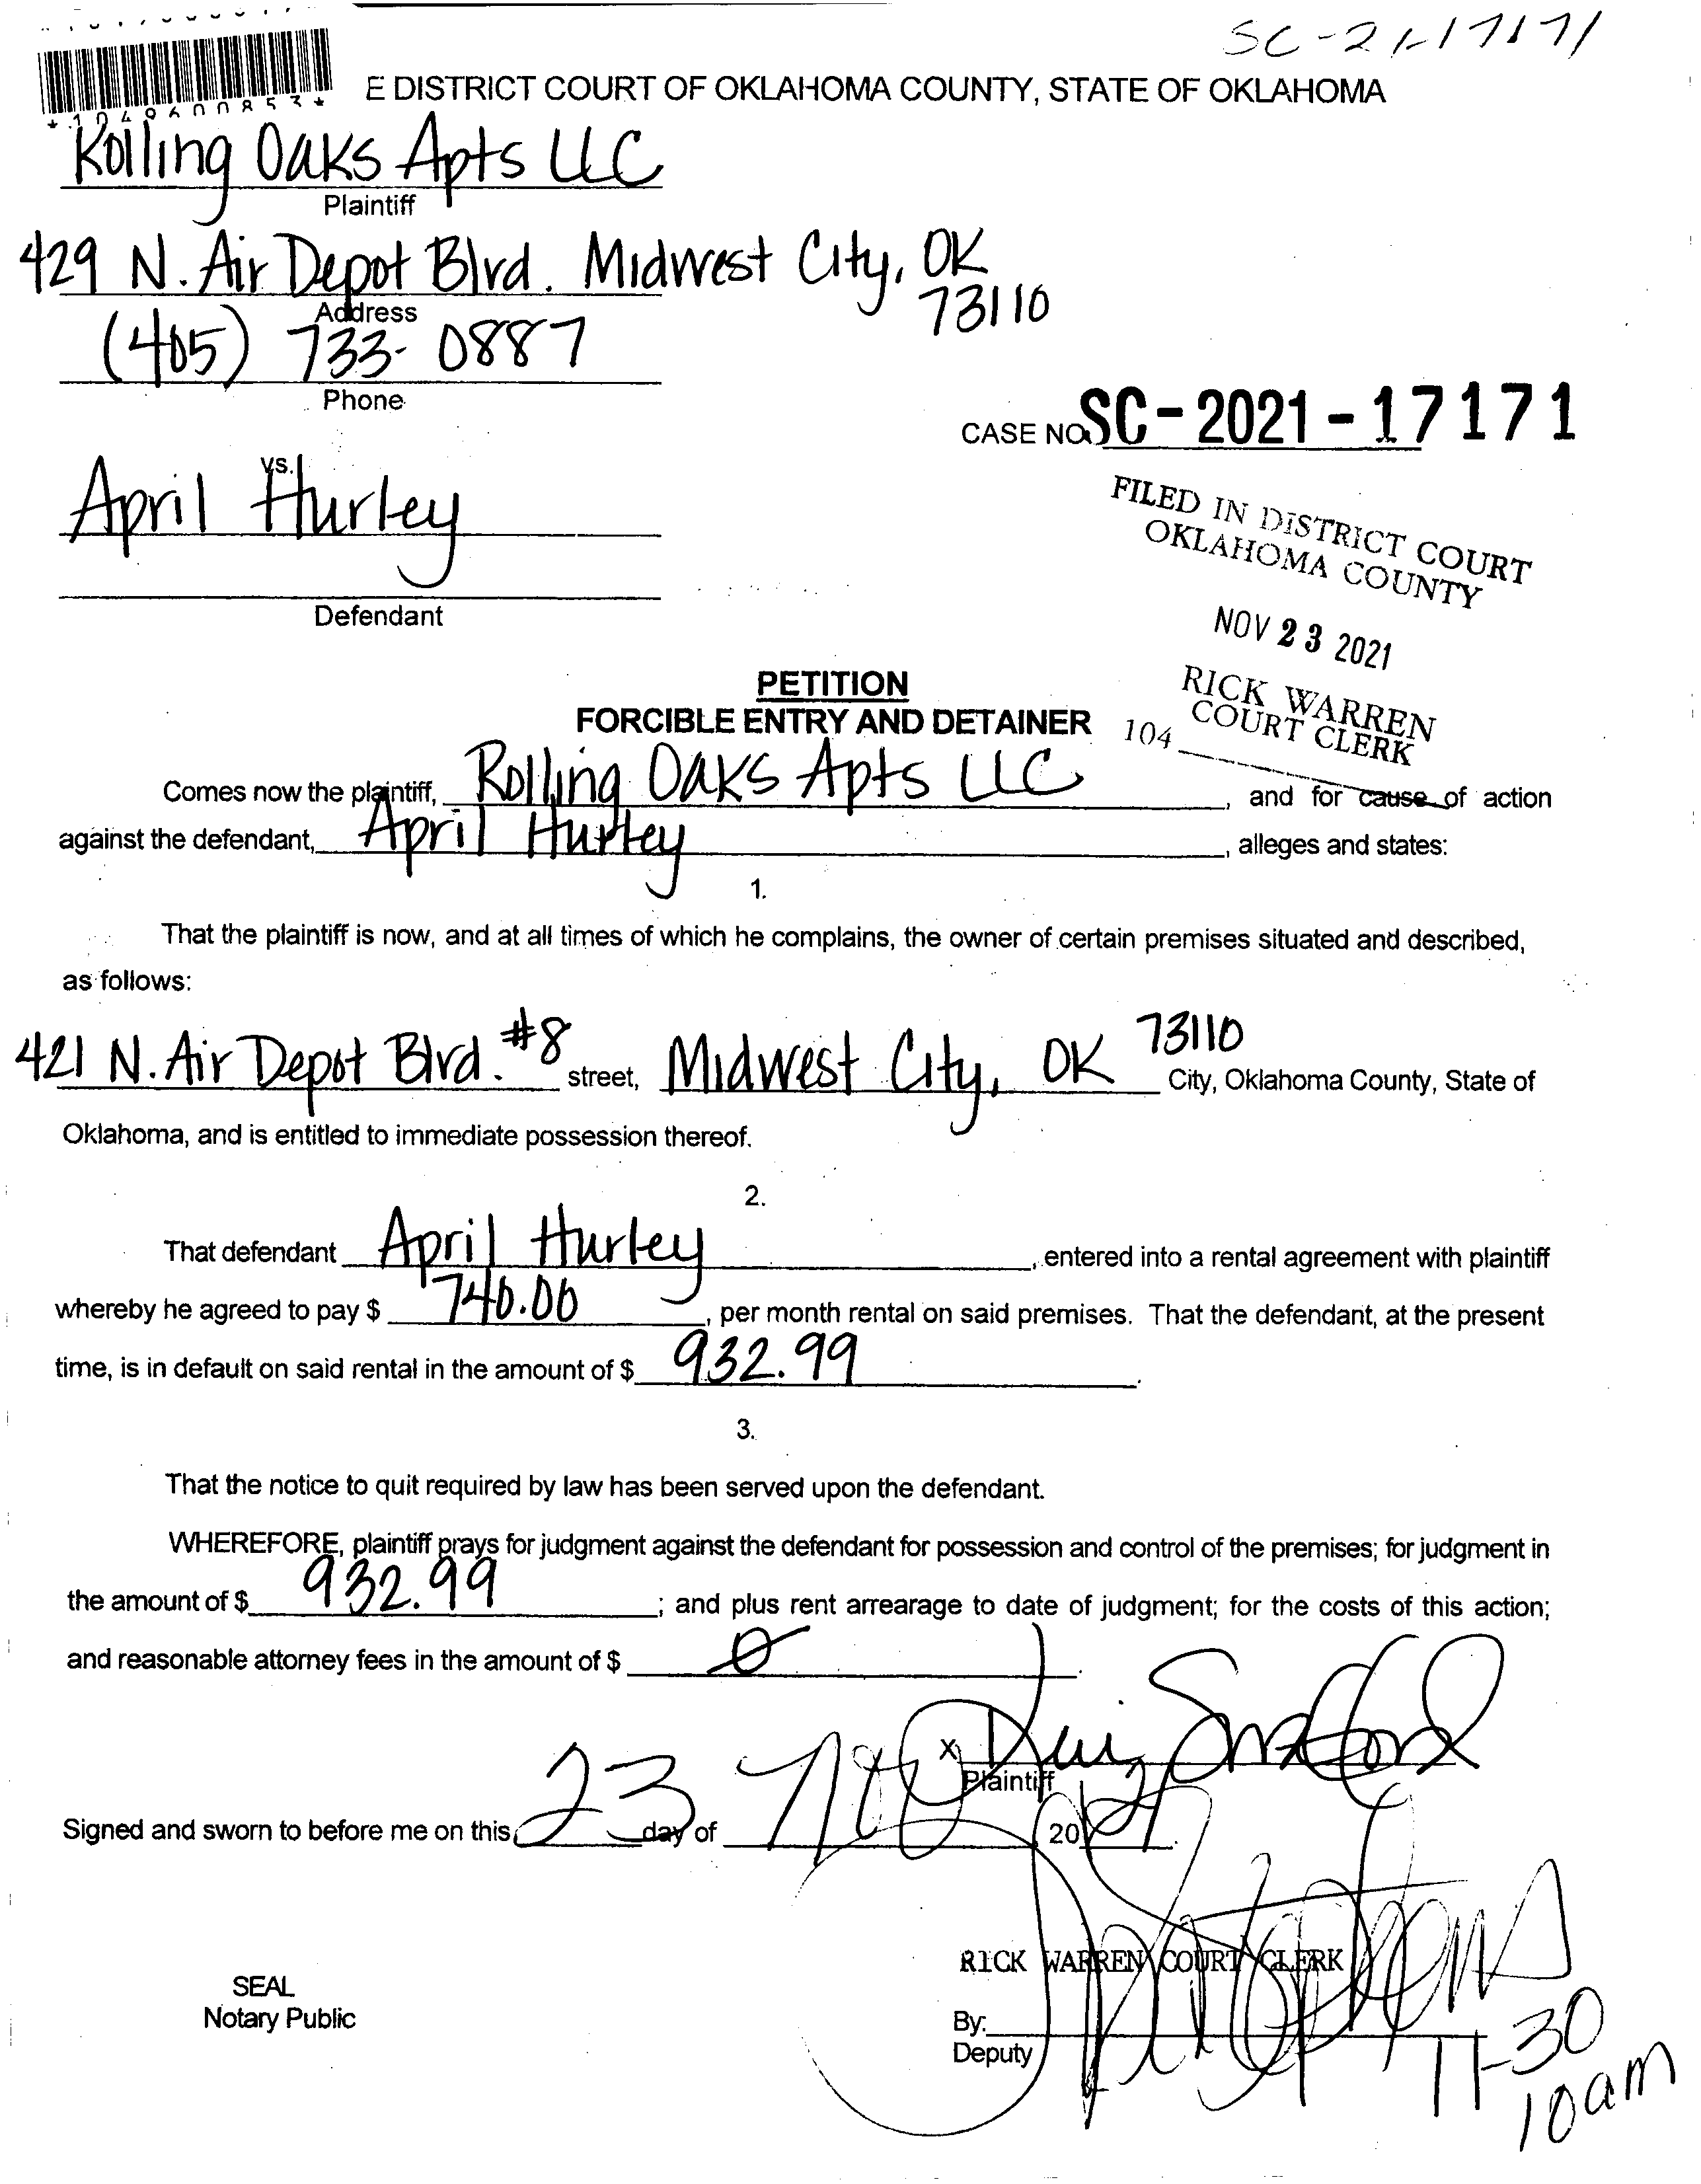 SC-21-17171
*1049600853*
E DISTRICT COURT OF OKLAHOMA COUNTY, STATE OF OKLAHOMA
Rolling Oaks Apts LLC
Plaintiff
429 N. Air Depot Blvd. Midwest City, OK
73110
Address
(405) 733-0887
Phone
CASE NO. SC-2021-17171
vs.
April Hurley
Defendant
FILED IN DISTRICT COURT
OKLAHOMA COUNTY
NOV 23 2021
RICK WARREN
COURT CLERK
104
PETITION
FORCIBLE ENTRY AND DETAINER
Comes now the plaintiff, Rolling Oaks Apts LLC, and for cause of action
against the defendant, April Hurley, alleges and states:
1.
That the plaintiff is now, and at all times of which he complains, the owner of certain premises situated and described,
as follows:
421 N. Air Depot Blvd. #8 street, Midwest City, OK 73110 City, Oklahoma County, State of
Oklahoma, and is entitled to immediate possession thereof.
2.
That defendant April Hurley, entered into a rental agreement with plaintiff
whereby he agreed to pay $ 740.00, per month rental on said premises. That the defendant, at the present
time, is in default on said rental in the amount of $ 932.99.
3.
That the notice to quit required by law has been served upon the defendant.
WHEREFORE, plaintiff prays for judgment against the defendant for possession and control of the premises; for judgment in
the amount of $ 932.99; and plus rent arrearage to date of judgment; for the costs of this action;
and reasonable attorney fees in the amount of $ 0.
X
Plaintiff
Signed and sworn to before me on this 23 day of Nov 2021.
RICK WARREN COURT CLERK
SEAL
Notary Public
By:
Deputy
11-30
10am